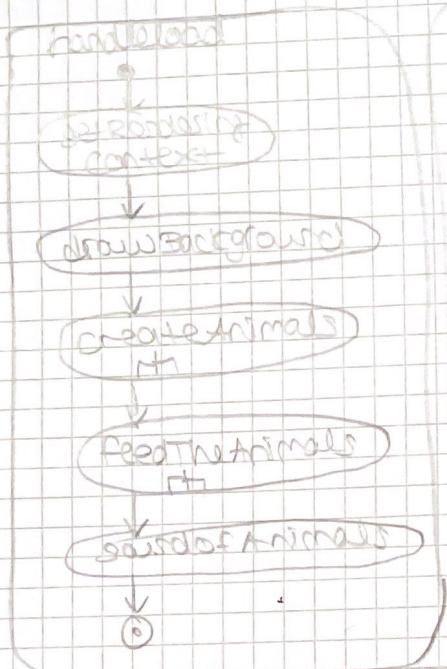 handleload
getRendering
context
drawBackground
createAnimals
feedTheAnimals
soundofAnimals